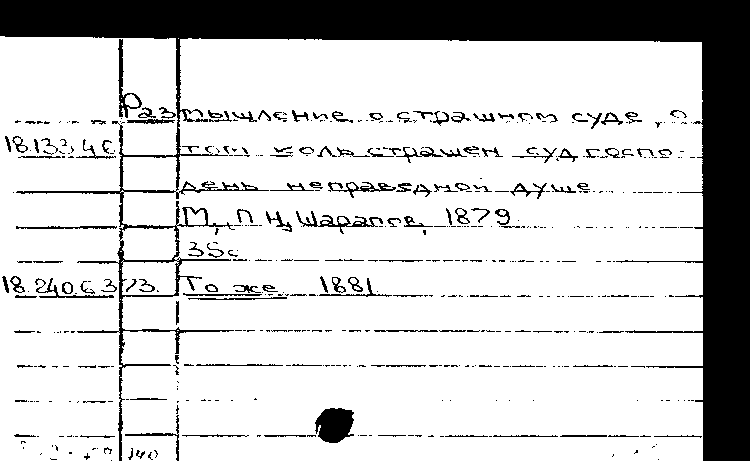 Размышление о страшном суде, о
18.133.4.6 том коль страшен суд госпо-
день неправедной душе
М., П. Н. Шарапов, 1879
35с
18.240.6.373. То же 1881